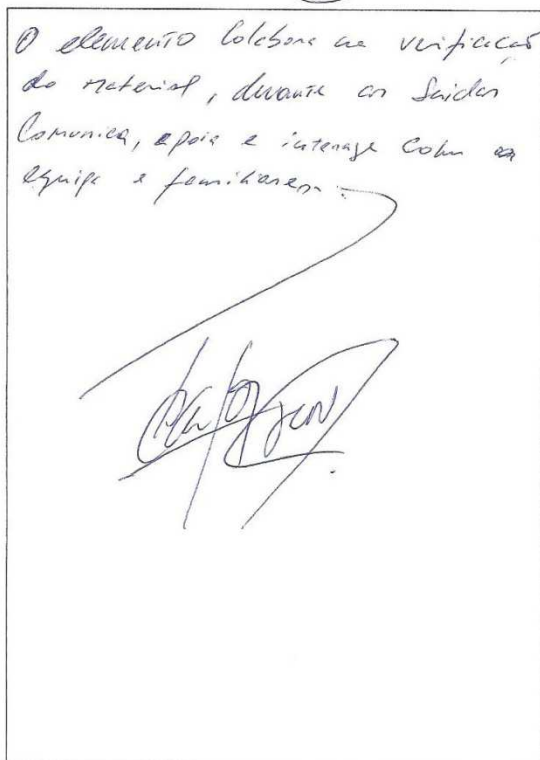 O elemento colabora na verificação
do material, durante as saidas
Comunica, apoia e interage com a
equipa e familiares.